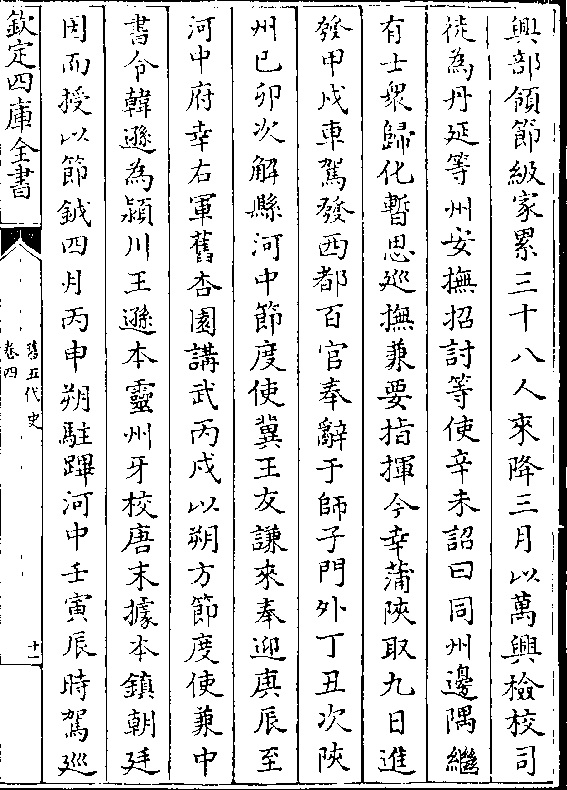 興部領節級家累三十八人來降三月以萬興檢校司
徒為丹延等州安撫招討等使辛未詔曰同州邊隅繼
有士衆歸化暫思廵撫兼要指揮今幸蒲陜取九日進
發甲戍車駕發西都百官奉辭于師子門外丁丑次陜
州已卯次解縣河中節度使冀王友謙來奉迎庚辰至
河中府幸右軍舊杏園講武丙戍以朔方節度使兼中
書令韓遜為潁川王遜本靈州牙校唐末據本鎮朝廷
因而授以節鉞四月丙申朔駐蹕河中壬寅辰時駕廵
欽定四庫全書
舊五代史
卷四
十一